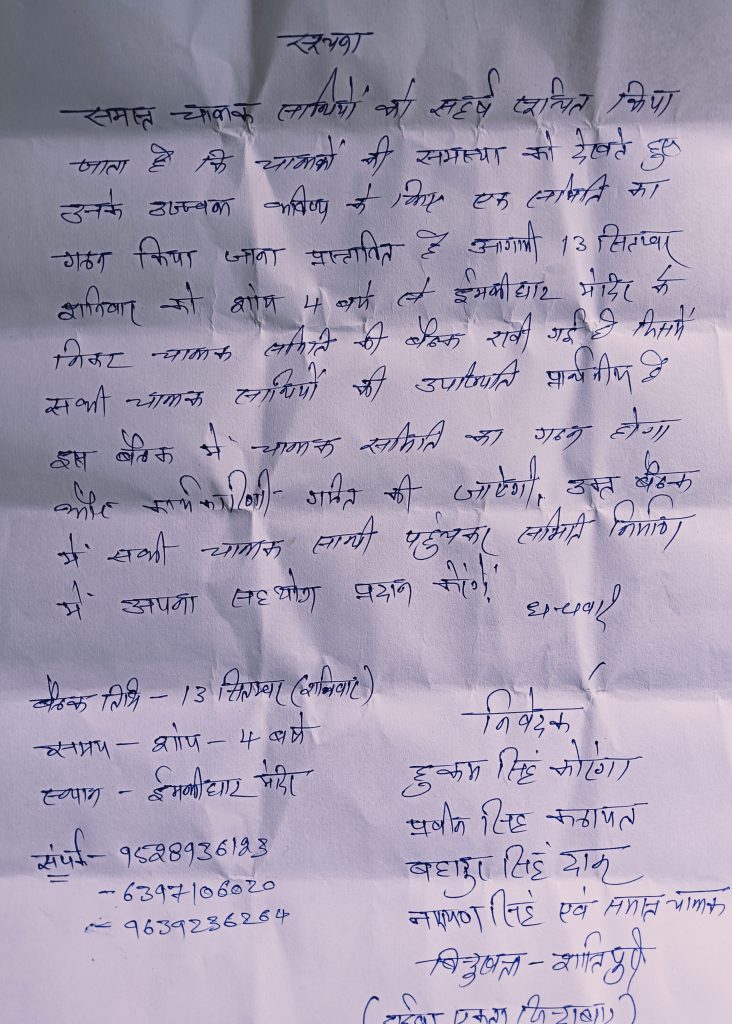 सूचना
समस्त चालक साथियों को सहर्ष सूचित किया
जाता है कि चालकों की समस्या को देखते हुए
उनके उज्जवल भविष्य के लिए एक समिति का
गठन किया जाना प्रस्तावित है आगामी 13 सितम्बर
शनिवार को शाय 4 बजे से ईमलीघार मंदिर के
निकट चालक समिति की बैठक रखी गई है जिसमें
सभी चालक साथियों की उपस्थिति प्रार्थनीय है
इस बैठक में चालक समिति का गठन होगा
और कार्यकारिणी गठित की जाएगी, उक्त बैठक
में सभी चालक साथी पहुंचकर समिति निर्माण
में अपना सहयोग प्रदान करेंगे।
धन्यवाद
बैठक तिथि - 13 सितम्बर (शनिवार)
समय - शाय - 4 बजे
स्थान - ईमलीघार मंदिर
संपर्क - 9528936123
- 6397106020
- 9639236264
निवेदक
हुकम सिंह कोरंगा
प्रवीन सिंह कठायत
बहादुर सिंह
नारायण सिंह एवं समस्त चालक
बिन्दुखत्ता - शांतिपुरी
एकता जिन्दाबाद)